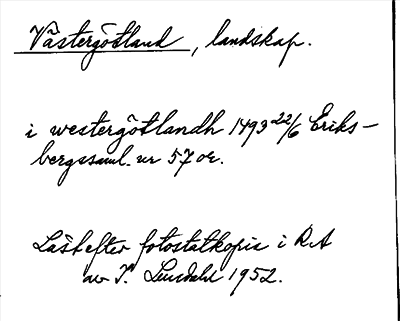 Västergötland, landskap.
i westergötlandh 1493 22/6 Eriks-
bergssaml. nr 57 or.
Läst efter fotostatkopia i RA
av I. Lundahl 1952.